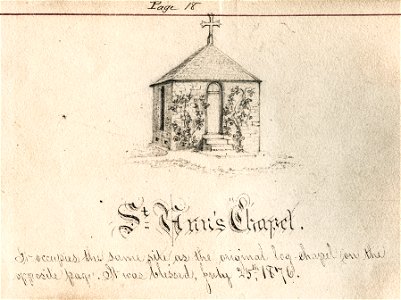 Page 18
St. Ann's Chapel.
It occupies the same site as the original log chapel on the
opposite page. It was blessed, July 25th 1876.